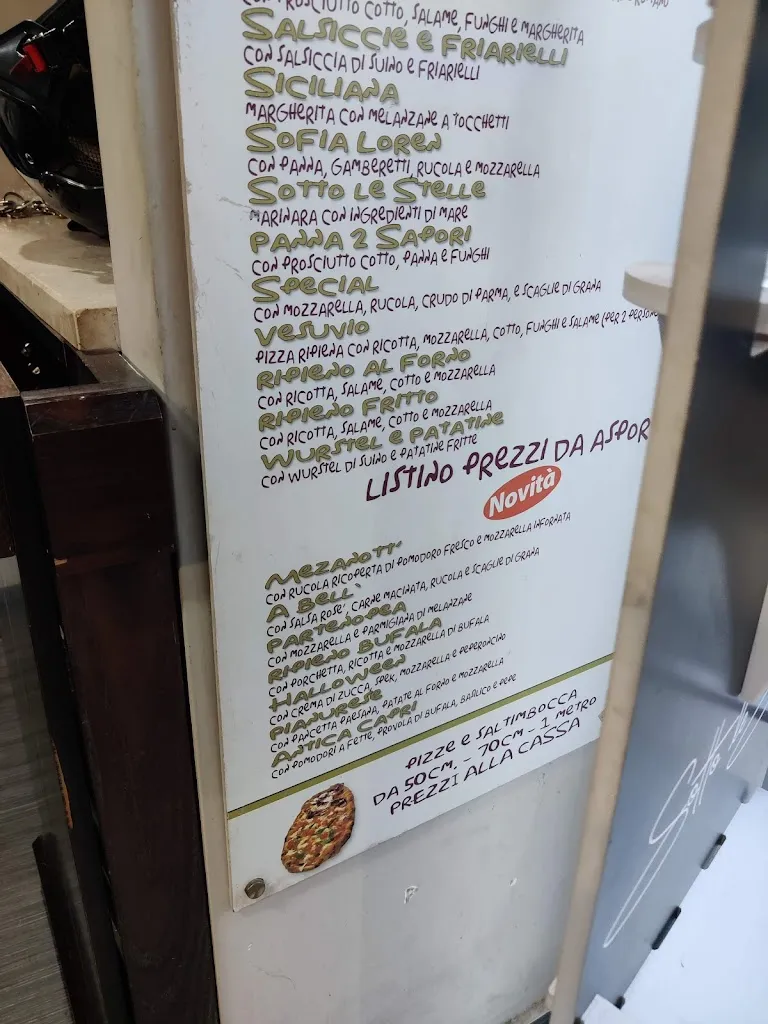 CON PROSCIUTTO COTTO, SALAME, FUNGHI E MARGHERITA
SALSICCIE E FRIARIELLI
CON SALSICCIA DI SUINO E FRIARIELLI
SICILIANA
MARGHERITA CON MELANZANE A TOCCHETTI
SOFIA LOREN
CON PANNA, GAMBERETTI, RUCOLA E MOZZARELLA
SOTTO LE STELLE
MARINARA CON INGREDIENTI DI MARE
PANNA 2 SAPORI
CON PROSCIUTTO COTTO, PANNA E FUNGHI
SPECIAL
CON MOZZARELLA, RUCOLA, CRUDO DI PARMA, E SCAGLIE DI GRANA
VESUVIO
PIZZA RIPIENA CON RICOTTA, MOZZARELLA, COTTO, FUNGHI E SALAME (PER 2 PERSON
RIPIENO AL FORNO
CON RICOTTA, SALAME, COTTO E MOZZARELLA
RIPIENO FRITTO
CON RICOTTA, SALAME, COTTO E MOZZARELLA
WURSTEL E PATATINE
CON WURSTEL DI SUINO E PATATINE FRITTE
LISTINO PREZZI DA ASPOR
Novità
MEZANOTT'
CON RUCOLA RICOPERTA DI POMODORO FRESCO E MOZZARELLA INFORNATA
A BELL'
CON SALSA ROSE', CARNE MACINATA, RUCOLA E SCAGLIE DI GRANA
PARTENOPEA
CON MOZZARELLA E PARMIGIANA DI MELANZANE
RIPIENO BUFALA
CON PORCHETTA, RICOTTA E MOZZARELLA DI BUFALA
HALLOWEEN
CON CREMA DI ZUCCA, SPEK, MOZZARELLA E PEPERONCINO
PIANURESE
CON PANCETTA PAESANA, PATATE AL FORNO E MOZZARELLA
ANTICA CAPRI
CON POMODORI A FETTE, PROVOLA DI BUFALA, BASILICO E PEPE
PIZZE E SALTIMBOCCA
DA 50CM. - 70CM - 1 METRO
PREZZI ALLA CASSA